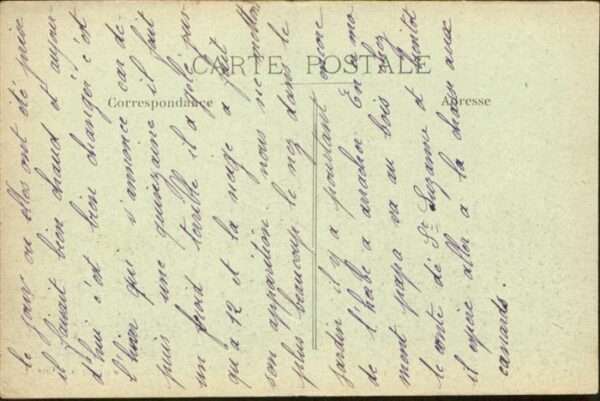 CARTE POSTALE
Correspondance
Adresse
le jour ou elles ont été prise
il faisait bien chaud et aujour
d'hui c'est bien changer c'est
l'hiver qui s'annonce car de
puis une quinzaine il fait
un froid terrible il a gelé jus
qu'a 12 et la neige a fait
son apparition nous ne mettons
plus beaucoup le nez dans le
jardin il y a pourtant encore
de l'herbe a arracher En ce mo
ment papa va au bois chez
le conte de Ste Suzanne et bientôt
il espère aller a la chasse aux
canards.